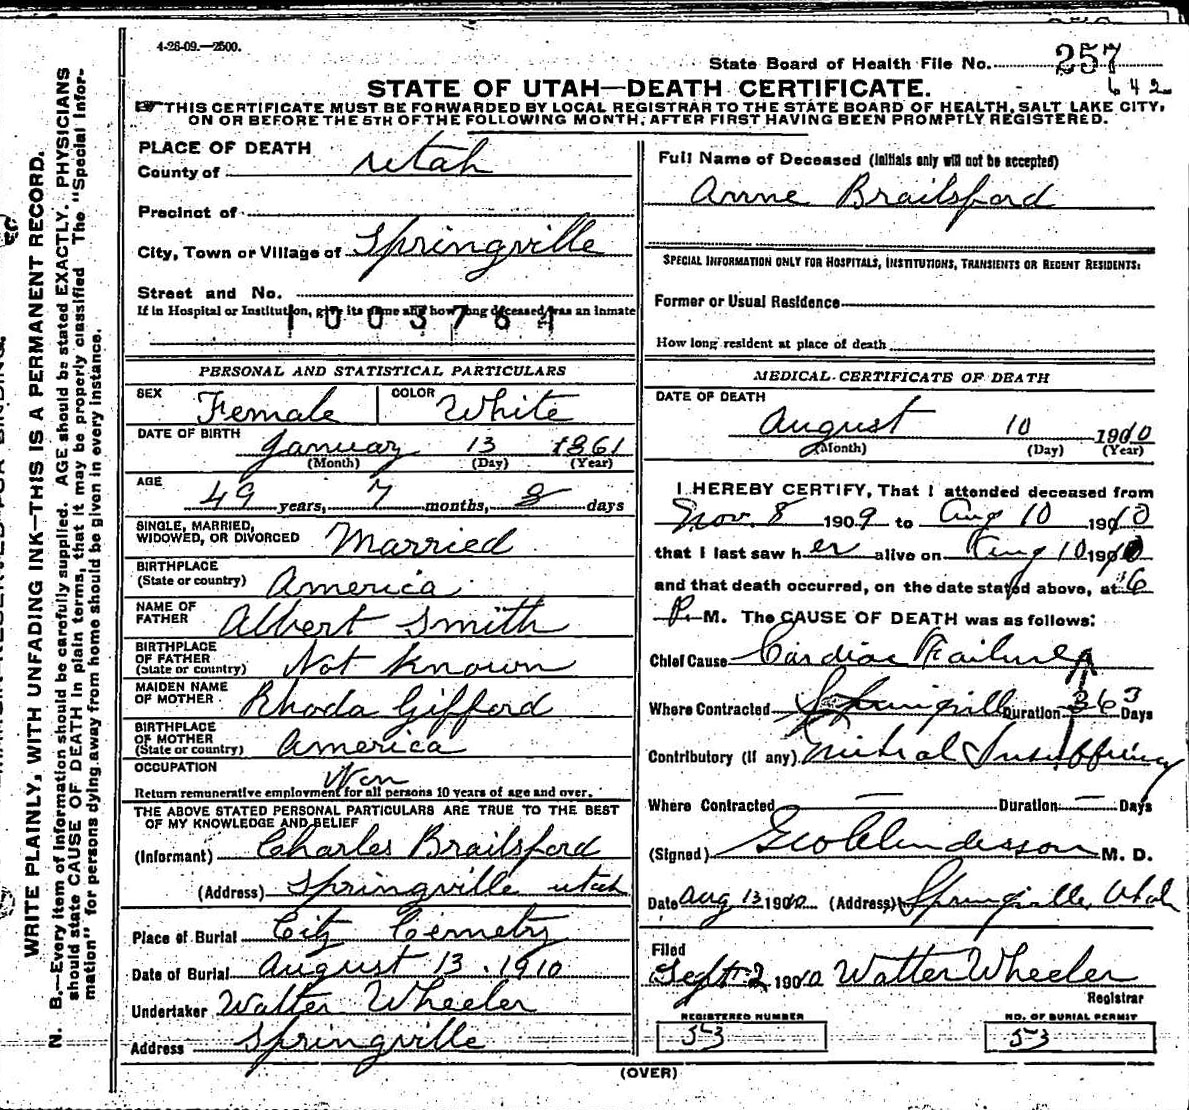 4-26-09.—2500.
State Board of Health File No. 257
642
STATE OF UTAH—DEATH CERTIFICATE.
THIS CERTIFICATE MUST BE FORWARDED BY LOCAL REGISTRAR TO THE STATE BOARD OF HEALTH, SALT LAKE CITY,
ON OR BEFORE THE 5TH OF THE FOLLOWING MONTH, AFTER FIRST HAVING BEEN PROMPTLY REGISTERED.
WRITE PLAINLY, WITH UNFADING INK—THIS IS A PERMANENT RECORD.
N. B.—Every item of information should be carefully supplied. AGE should be stated EXACTLY. PHYSICIANS
should state CAUSE OF DEATH in plain terms, that it may be properly classified. The "Special Infor-
mation" for persons dying away from home should be given in every instance.
PLACE OF DEATH
County of Utah
Precinct of
City, Town or Village of Springville
Street and No.
If in Hospital or Institution, give its name and how long deceased was an inmate
1003764
PERSONAL AND STATISTICAL PARTICULARS
SEX Female COLOR White
DATE OF BIRTH January 13 1861
(Month) (Day) (Year)
AGE 49 years, 7 months, 8 days
SINGLE, MARRIED,
WIDOWED, OR DIVORCED Married
BIRTHPLACE
(State or country) America
NAME OF
FATHER Albert Smith
BIRTHPLACE
OF FATHER
(State or country) Not Known
MAIDEN NAME
OF MOTHER Rhoda Gifford
BIRTHPLACE
OF MOTHER
(State or country) America
OCCUPATION
Return remunerative employment for all persons 10 years of age and over.
THE ABOVE STATED PERSONAL PARTICULARS ARE TRUE TO THE BEST
OF MY KNOWLEDGE AND BELIEF
(Informant) Charles Brailsford
(Address) Springville Utah
Place of Burial City Cemetry
Date of Burial August 13. 1910
Undertaker Walter Wheeler
Address Springville
Full Name of Deceased (Initials only will not be accepted)
Anne Brailsford
SPECIAL INFORMATION ONLY FOR HOSPITALS, INSTITUTIONS, TRANSIENTS OR RECENT RESIDENTS:
Former or Usual Residence
How long resident at place of death
MEDICAL CERTIFICATE OF DEATH
DATE OF DEATH
August 10 1910
(Month) (Day) (Year)
I HEREBY CERTIFY, That I attended deceased from
Nov. 8 1909 to Aug 10 1910
that I last saw her alive on Aug 10 1910
and that death occurred, on the date stated above, at 6
P. M. The CAUSE OF DEATH was as follows:
Chief Cause Cardiac Failure
Where Contracted Springville Duration 363 Days
Contributory (if any) Mitral Insufficiency
Where Contracted — Duration — Days
(Signed) Geo Anderson M. D.
Date Aug 13 1910 (Address) Springville, Utah
Filed
Sept. 2 1910 Walter Wheeler
Registrar
REGISTERED NUMBER
53
NO. OF BURIAL PERMIT
53
(OVER)